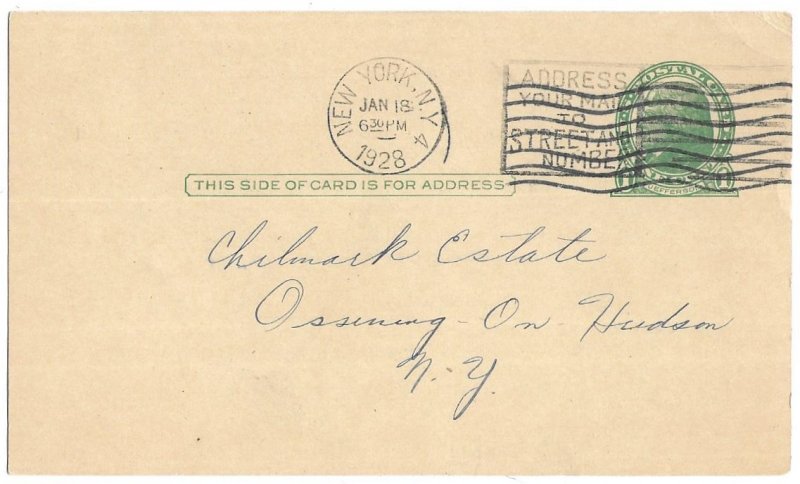 NEW YORK, N.Y. 4
JAN 18
6 30 PM
1928
ADDRESS
YOUR MAIL
TO
STREET AND
NUMBER
POSTAL CARD
JEFFERSON
THIS SIDE OF CARD IS FOR ADDRESS
Chilmark Estate
Ossining-On-Hudson
N.Y.